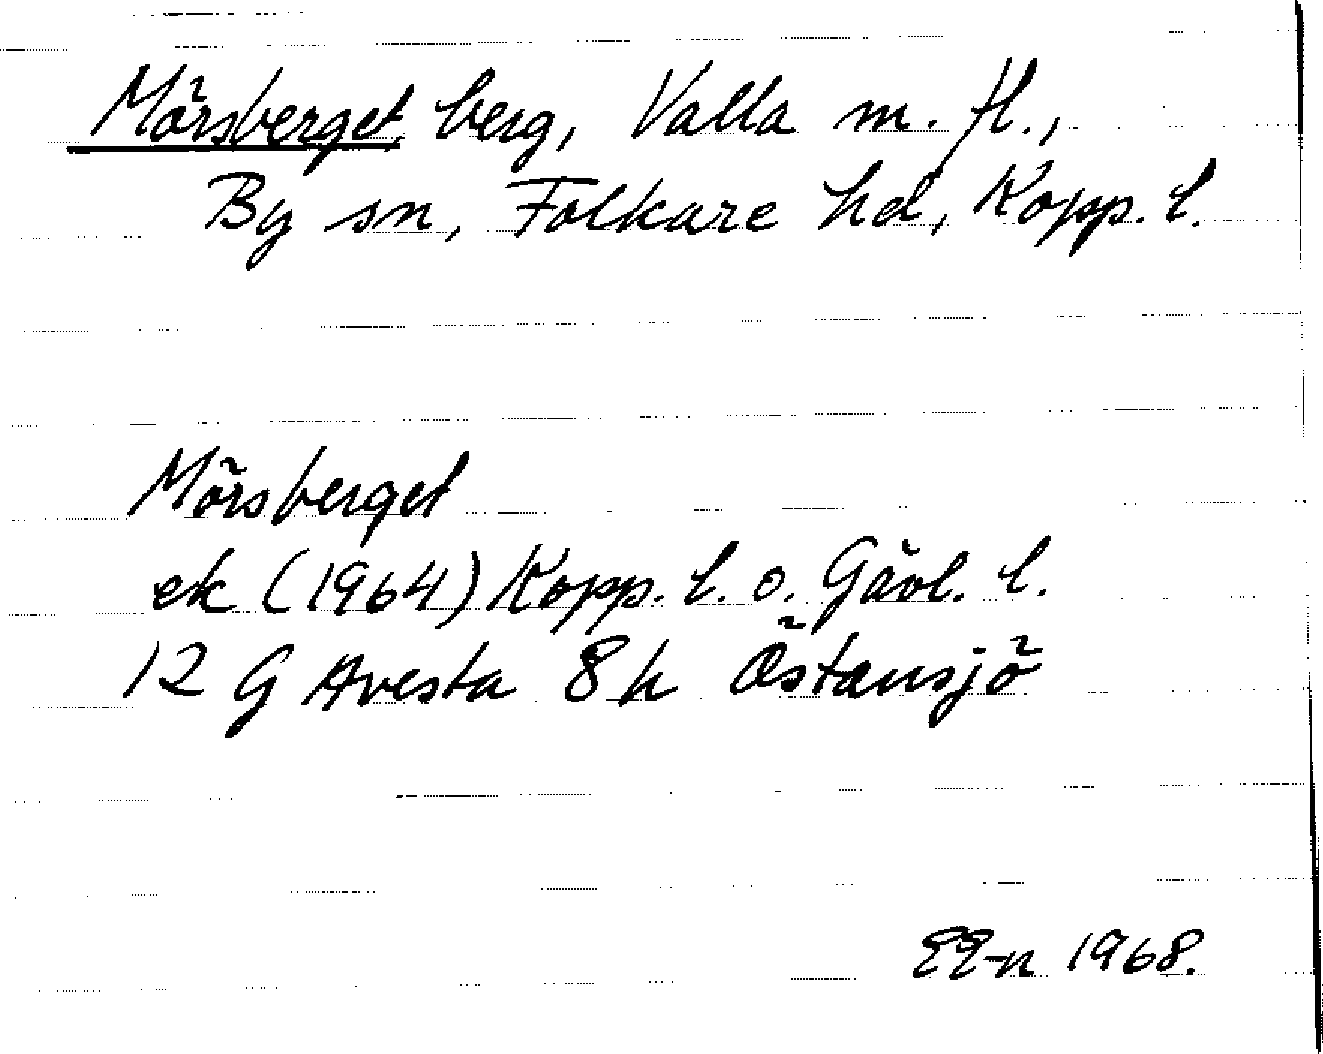 Mörsberget, berg, Valla m. fl.,
By sn, Folkare hd, Kopp. l.
Mörsberget
ek (1964) Kopp. l. o. Gävl. l.
12 G Avesta 8h Östansjö
EE-n 1968.